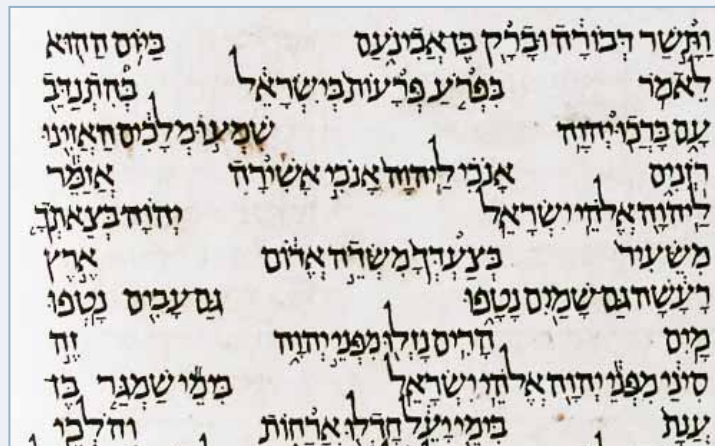 וַתָּשַׁר דְּבוֹרָה וּבָרָק בֶּן אֲבִינֹעַם בַּיּוֹם הַהוּא
לֵאמֹר בִּפְרֹעַ פְּרָעוֹת בְּיִשְׂרָאֵל בְּהִתְנַדֵּב
עָם בָּרֲכוּ יְהוָה שִׁמְעוּ מְלָכִים הַאֲזִינוּ
רֹזְנִים אָנֹכִי לַיהוָה אָנֹכִי אָשִׁירָה אֲזַמֵּר
לַיהוָה אֱלֹהֵי יִשְׂרָאֵל יְהוָה בְּצֵאתְךָ
מִשֵּׂעִיר בְּצַעְדְּךָ מִשְּׂדֵה אֱדוֹם אֶרֶץ
רָעָשָׁה גַּם שָׁמַיִם נָטָפוּ גַּם עָבִים נָטְפוּ
מָיִם הָרִים נָזְלוּ מִפְּנֵי יְהוָה זֶה
סִינַי מִפְּנֵי יְהוָה אֱלֹהֵי יִשְׂרָאֵל בִּימֵי שַׁמְגַּר בֶּן
עֲנָת בִּימֵי יָעֵל חָדְלוּ אֳרָחוֹת וְהֹלְכֵי